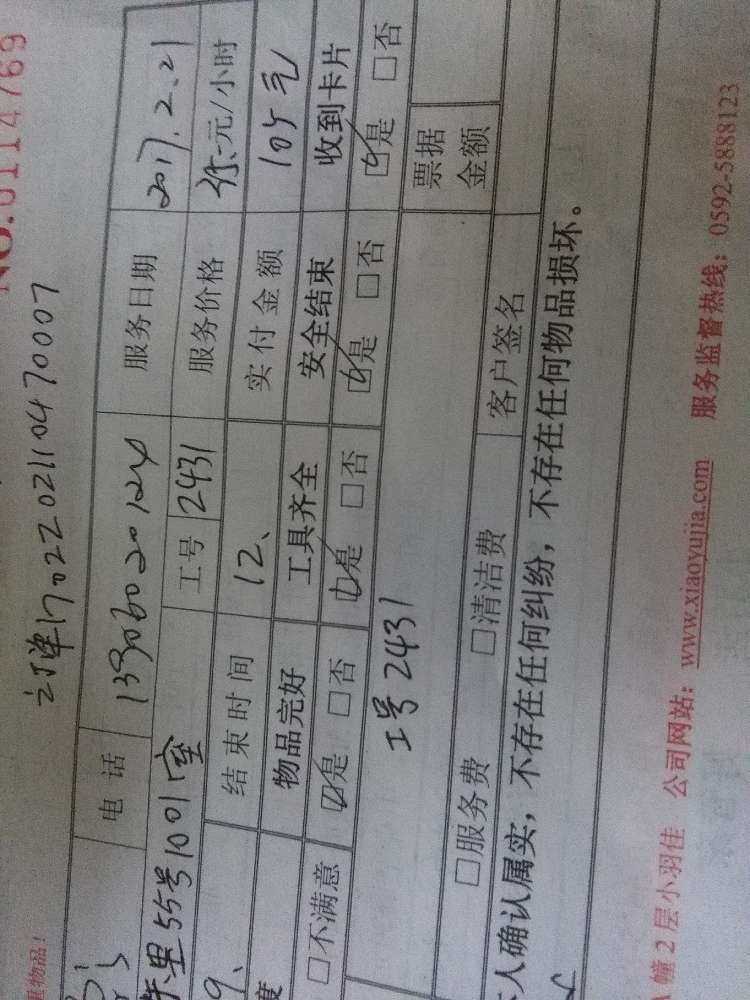 NO.0114769
订单1702202110470007
重物品!
电话 13906020124 服务日期 2017.2.21
里55号1001室 工号 2431 服务价格 元/小时
9、 结束时间 12、 实付金额 105元
度 物品完好 工具齐全 安全结束 收到卡片
□不满意 ☑是 □否 ☑是 □否 ☑是 □否 ☑是 □否
工号2431 票据金额
□服务费 □清洁费 客户签名
人确认属实,不存在任何纠纷,不存在任何物品损坏。
幢2层小羽佳 公司网站:www.xiaoyujia.com 服务监督热线:0592-5888123